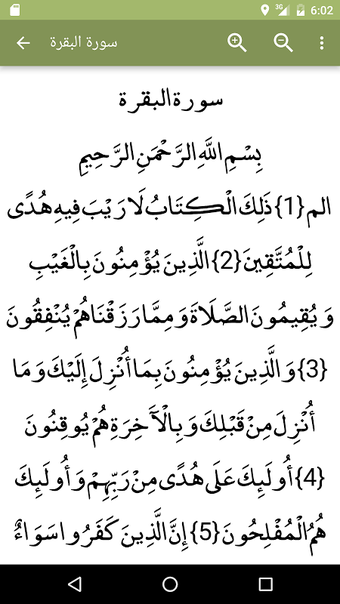 3G 6:02
سورة البقرة
سورة البقرة
بِسْمِ اللَّهِ الرَّحْمَنِ الرَّحِيمِ
الم {1} ذَلِكَ الْكِتَابُ لَا رَيْبَ فِيهِ هُدًى
لِلْمُتَّقِينَ {2} الَّذِينَ يُؤْمِنُونَ بِالْغَيْبِ
وَيُقِيمُونَ الصَّلَاةَ وَمِمَّا رَزَقْنَاهُمْ يُنْفِقُونَ
{3} وَالَّذِينَ يُؤْمِنُونَ بِمَا أُنْزِلَ إِلَيْكَ وَمَا
أُنْزِلَ مِنْ قَبْلِكَ وَبِالْآَخِرَةِ هُمْ يُوقِنُونَ
{4} أُولَئِكَ عَلَى هُدًى مِنْ رَبِّهِمْ وَأُولَئِكَ
هُمُ الْمُفْلِحُونَ {5} إِنَّ الَّذِينَ كَفَرُوا سَوَاءٌ